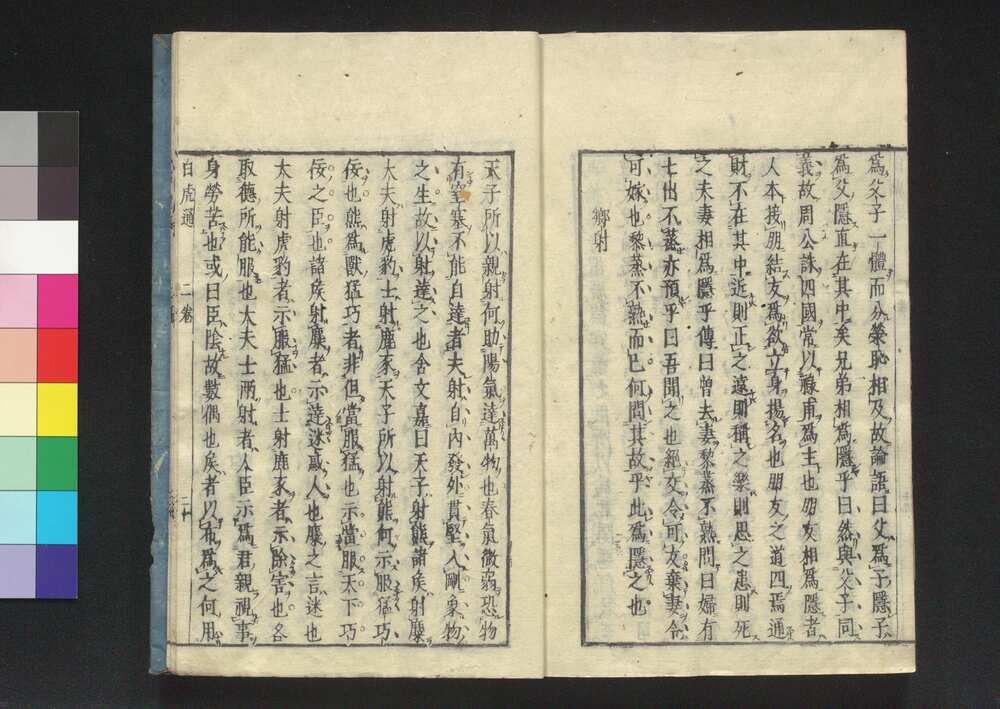 為父子一體而分榮恥相及故論語曰父為子隱子
為父隱直在其中矣兄弟相為隱乎曰然與父子同
義故周公誅四國常以祿甫為主也朋友相為隱者
人本接朋結友為欲立身揚名也朋友之道四焉通
財不在其中近則正之遠則稱之樂則思之患則死
之夫妻相為隱乎傳曰曾去妻黎蒸不熟問曰婦有
七出不蒸亦預乎曰吾聞之也絕交令可友棄妻令
可嫁也黎蒸不熟而已何問其故乎此為隱之也
鄉射
天子所以親射何助陽氣達萬物也春氣微弱恐物
有窒塞不能自達者夫射自內發外貫堅入剛象物
之生故以射達之也含文嘉曰天子射熊諸矦射麋
大夫射虎豹士射鹿豕天子所以射熊何示服猛巧
佞也熊為獸猛巧者非但當服猛也示當服天下巧
佞之臣也諸矦射麋者示達迷惑人也麋之言迷也
大夫射虎豹者示服猛也士射鹿豕者示除害也各
取德所能服也大夫士兩射者人臣示為君親視事
身勞苦也或曰臣陰故數偶也矦者以布為之何用
白虎通 二卷 二十